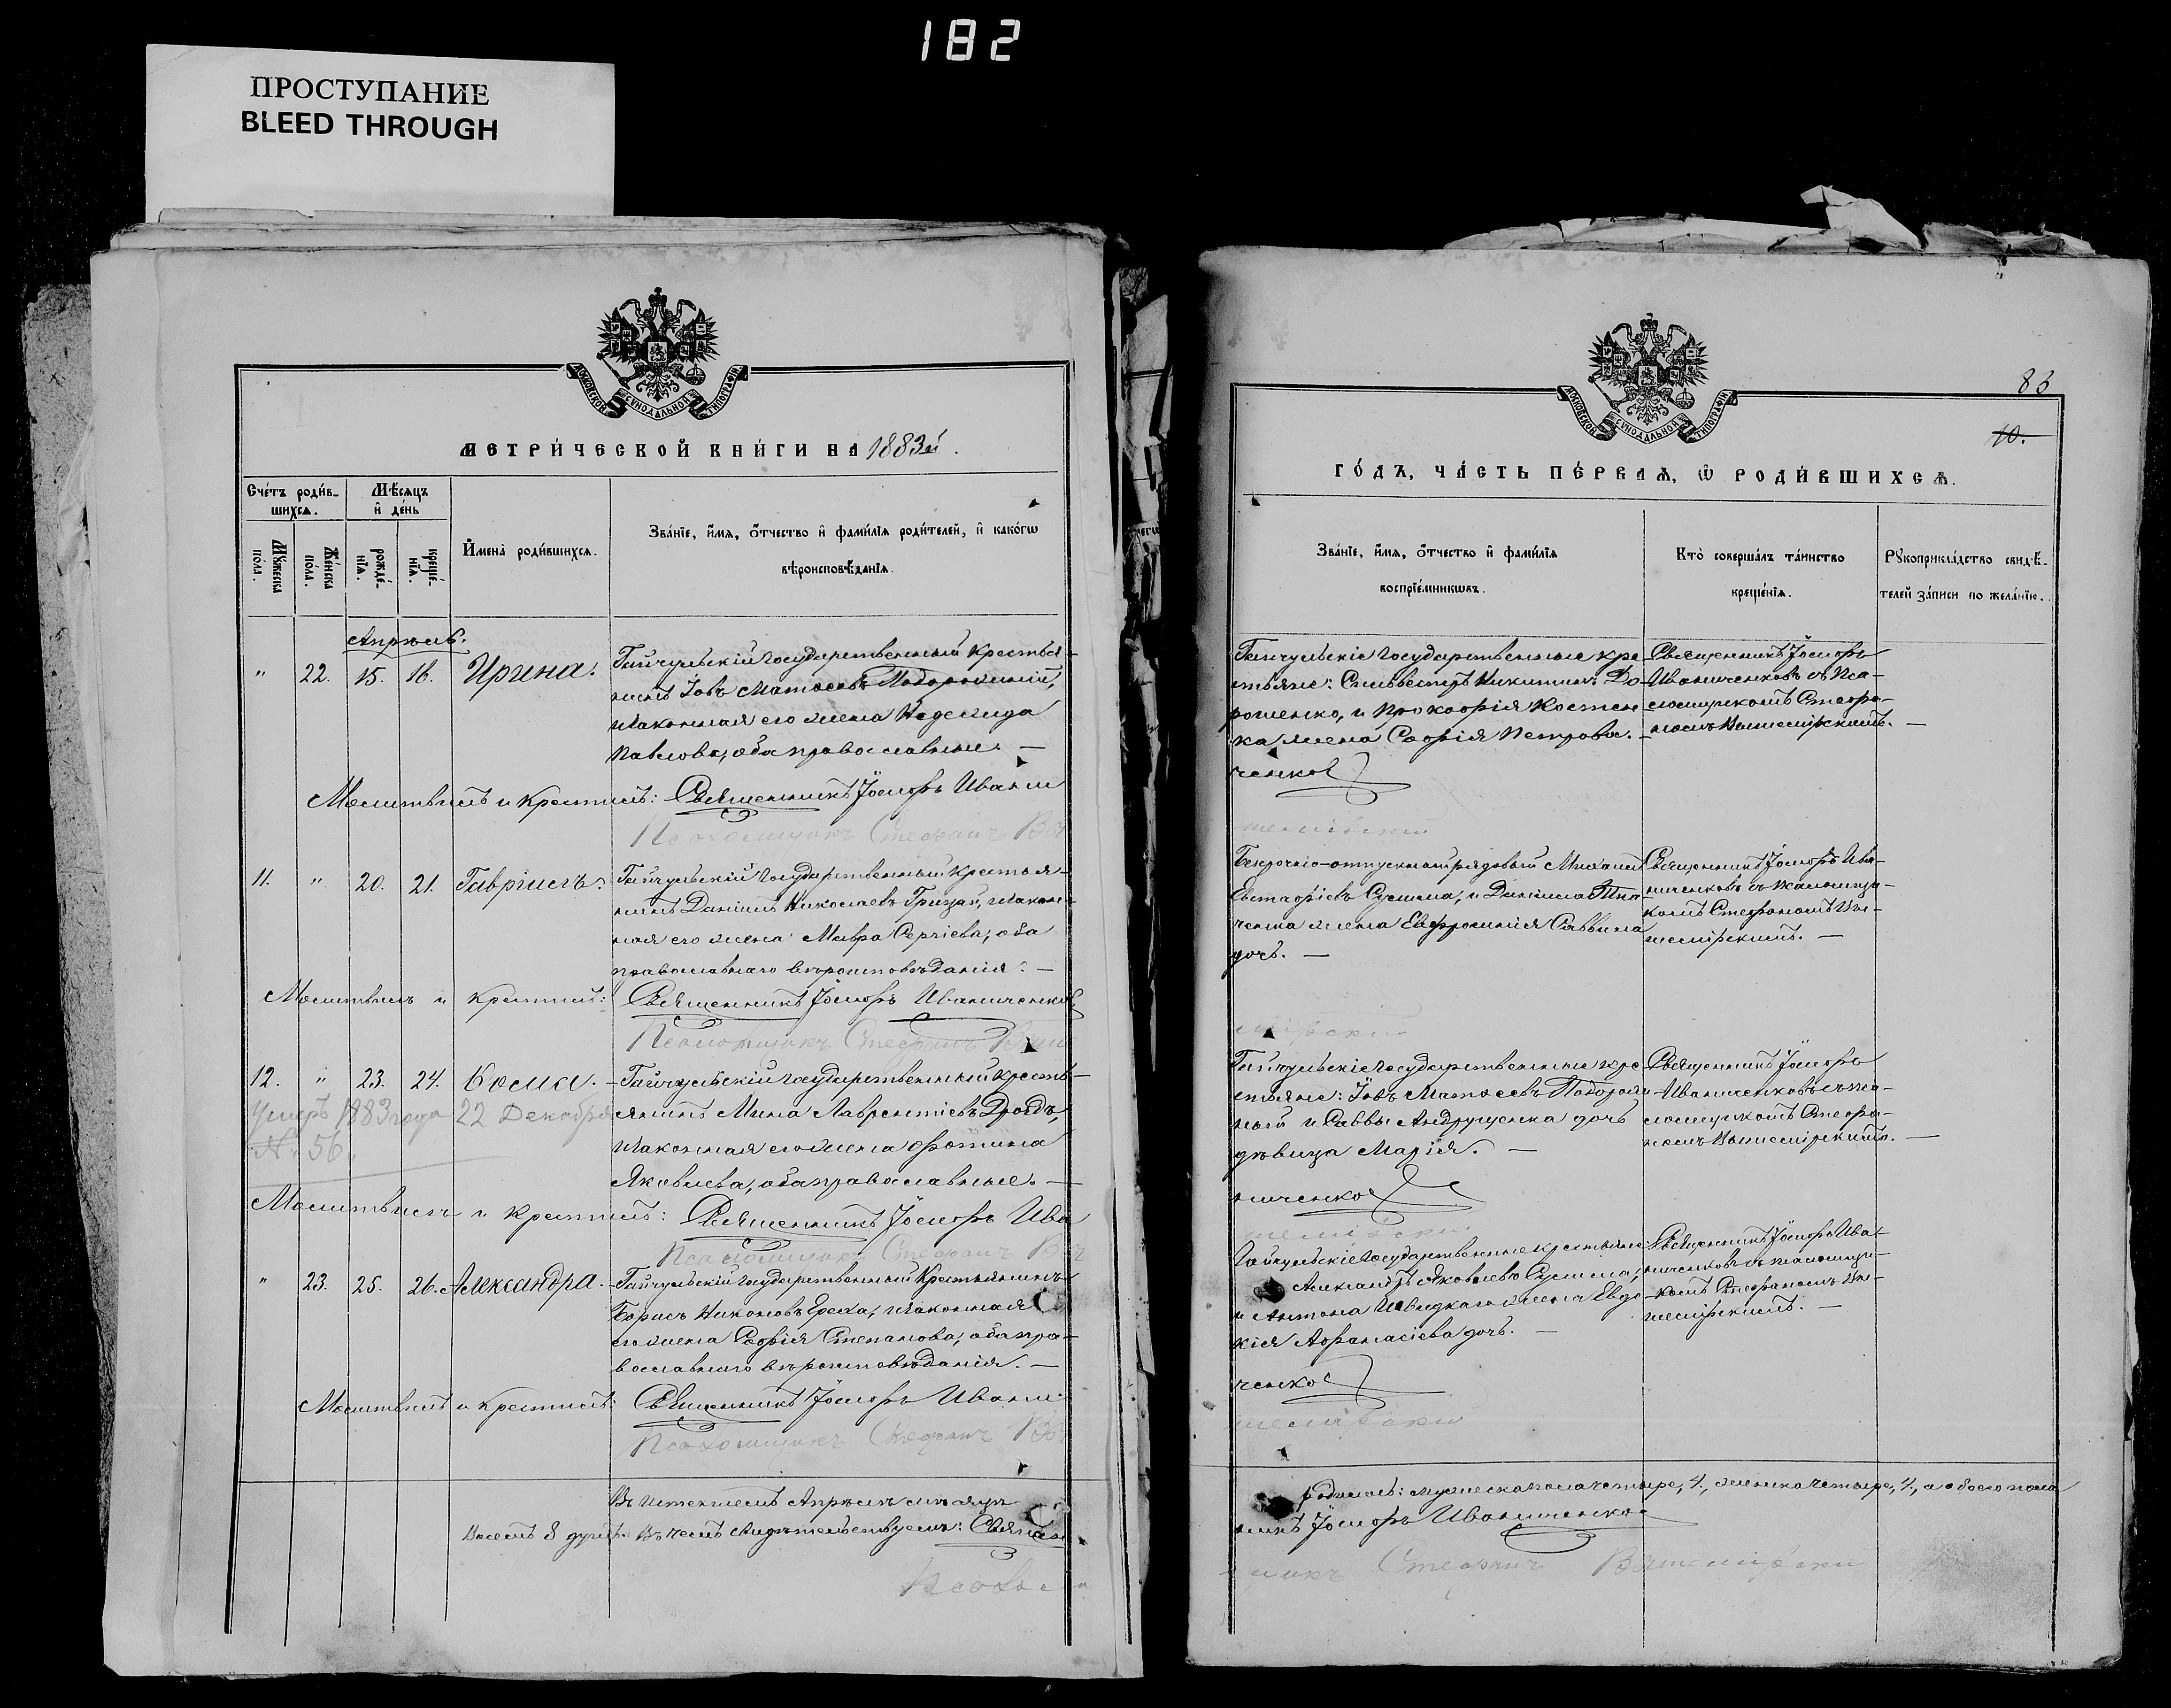 182
ПРОСТУПАНИЕ
BLEED THROUGH
МОСКОВСКОЙ СѴНОДАЛЬНОЙ ТИПОГРАФІИ
МЕТРИ́ЧЕСКОЙ КНИ́ГИ НА 1883й.
Сче́тъ роди́в-
шихсѧ.
Мѣ́сѧцъ
и҆ де́нь
И҆мена̀ роди́вшихсѧ.
Зва́нїе, и҆́мѧ, ѻ҆́тчество и҆ фами́лїѧ роди́телей, и҆ како́гѡ
вѣроисповѣ́данїѧ.
Мꙋ́жеска
по́ла.
Же́нска
по́ла.
рожде́-
нїѧ.
креще́-
нїѧ.
Апрѣль.
" 22. 15. 16. Ирина.
Гайчульскій государственный крестья-
нинъ Іовъ Матѳеевъ Подорожній,
и законная его жена
Павлова, оба православные. —
Молитвилъ и крестилъ: Священникъ Іосифъ Ивани
Псаломщикъ Стефанъ
11. " 20. 21. Гавріилъ.
Гайчульскій государственный крестья-
нинъ Даніилъ Николаевъ Грицай, и закон-
ная его жена Мавра Сергіева, оба
православнаго вѣроисповѣданія. —
Молитвилъ и крестилъ: Священникъ Іосифъ Иваниченков
Псаломщикъ Стефанъ
12. " 23. 24. Косма.
Гайчульскій государственный кресть-
янинъ Мина Лаврентіевъ Дроздъ,
и законная его жена Фотина
Яковлева, оба православные. —
Умеръ 1883 года 22 Декабря
№ 56.
Молитвилъ и крестилъ: Священникъ Іосифъ Ива
Псаломщикъ Стефанъ
" 23. 25. 26. Александра.
Гайчульскій государственный крестьянинъ
Борисъ Никоновъ Ерека, и законная
его жена Софія Степанова, оба пра-
вославнаго вѣроисповѣданія. —
Молитвилъ и крестилъ: Священникъ Іосифъ Ивани
Псаломщикъ Стефанъ
Въ истекшемъ Апрѣлѣ мѣсяцѣ
восемь 8 душъ. Въ чемъ свидѣтельствуемъ: Священ
Псалом
МОСКОВСКОЙ СѴНОДАЛЬНОЙ ТИПОГРАФІИ
83
10.
ГО́ДЪ, ЧА́СТЬ ПЕ́РВАѦ, Ѡ҆ РОДИ́ВШИХСѦ.
Зва́нїе, и҆́мѧ, ѻ҆́тчество и҆ фами́лїѧ
воспрїе́мникѡвъ.
Кто̀ соверша́лъ та́инство
креще́нїѧ.
Рꙋкоприкла́дство свидѣ́-
телей за́писи по жела́нїю.
Гайчульскіе государственные кре-
стьяне: Сильвестръ Никитинъ До-
рошенко, и Прокофія Костен
ка жена Софія Петрова. —
Священникъ Іосифъ
Иваниченковъ съ пса-
ломщикомъ Стефа-
номъ
ченков
Безсрочно-отпускный рядовый Михаилъ
Евстафіевъ Сушила, и Даніила Тка-
ченка жена Евфросинія Саввина
дочь. —
Священникъ Іосифъ Ива-
ниченковъ съ псаломщи-
комъ Стефаномъ
Гайчульскіе государственные кре-
стьяне: Іовъ Матѳеевъ Подорож-
ный и Саввы Андрущенка дочь
дѣвица Марія. —
Священникъ Іосифъ
Иваниченковъ съ пса-
ломщикомъ Стефа-
номъ
ниченков
Гайчульскіе государственные крестьяне:
Александръ Яковлевъ Сушила,
и Антона Швидкаго жена Евдо-
кія Афанасіева дочь. —
Священникъ Іосифъ Ива-
ниченковъ съ псаломщи-
комъ Стефаномъ
ченков
родилось: мужеска пола четыре, 4., женска четыре, 4., а обоего пола
никъ Іосифъ Иваниченков
щикъ Стефанъ